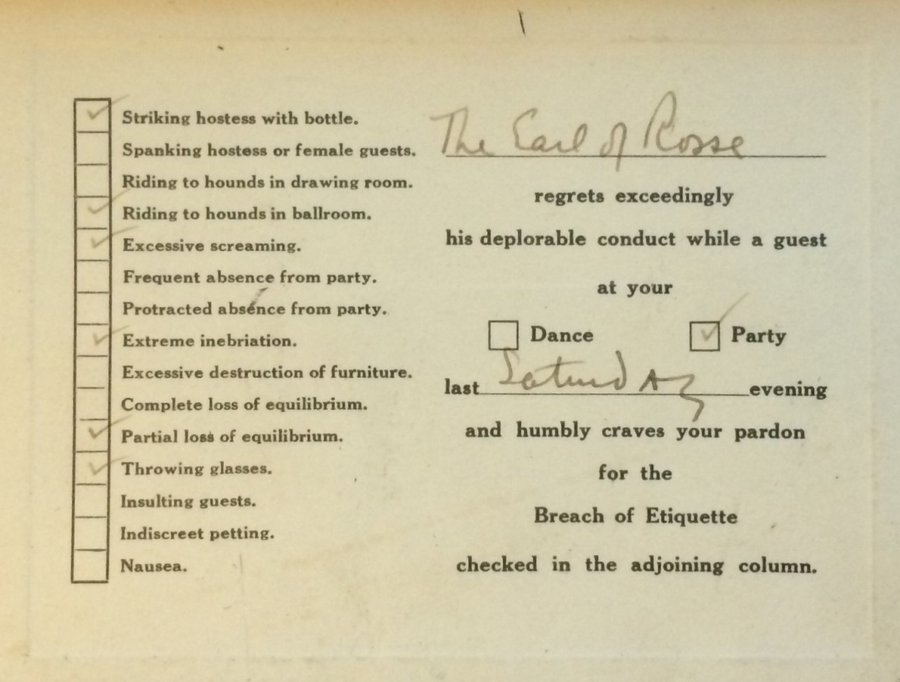 Striking hostess with bottle.
Spanking hostess or female guests.
Riding to hounds in drawing room.
Riding to hounds in ballroom.
Excessive screaming.
Frequent absence from party.
Protracted absence from party.
Extreme inebriation.
Excessive destruction of furniture.
Complete loss of equilibrium.
Partial loss of equilibrium.
Throwing glasses.
Insulting guests.
Indiscreet petting.
Nausea.
The Earl of Rosse
regrets exceedingly
his deplorable conduct while a guest
at your
Dance Party
last Saturday evening
and humbly craves your pardon
for the
Breach of Etiquette
checked in the adjoining column.